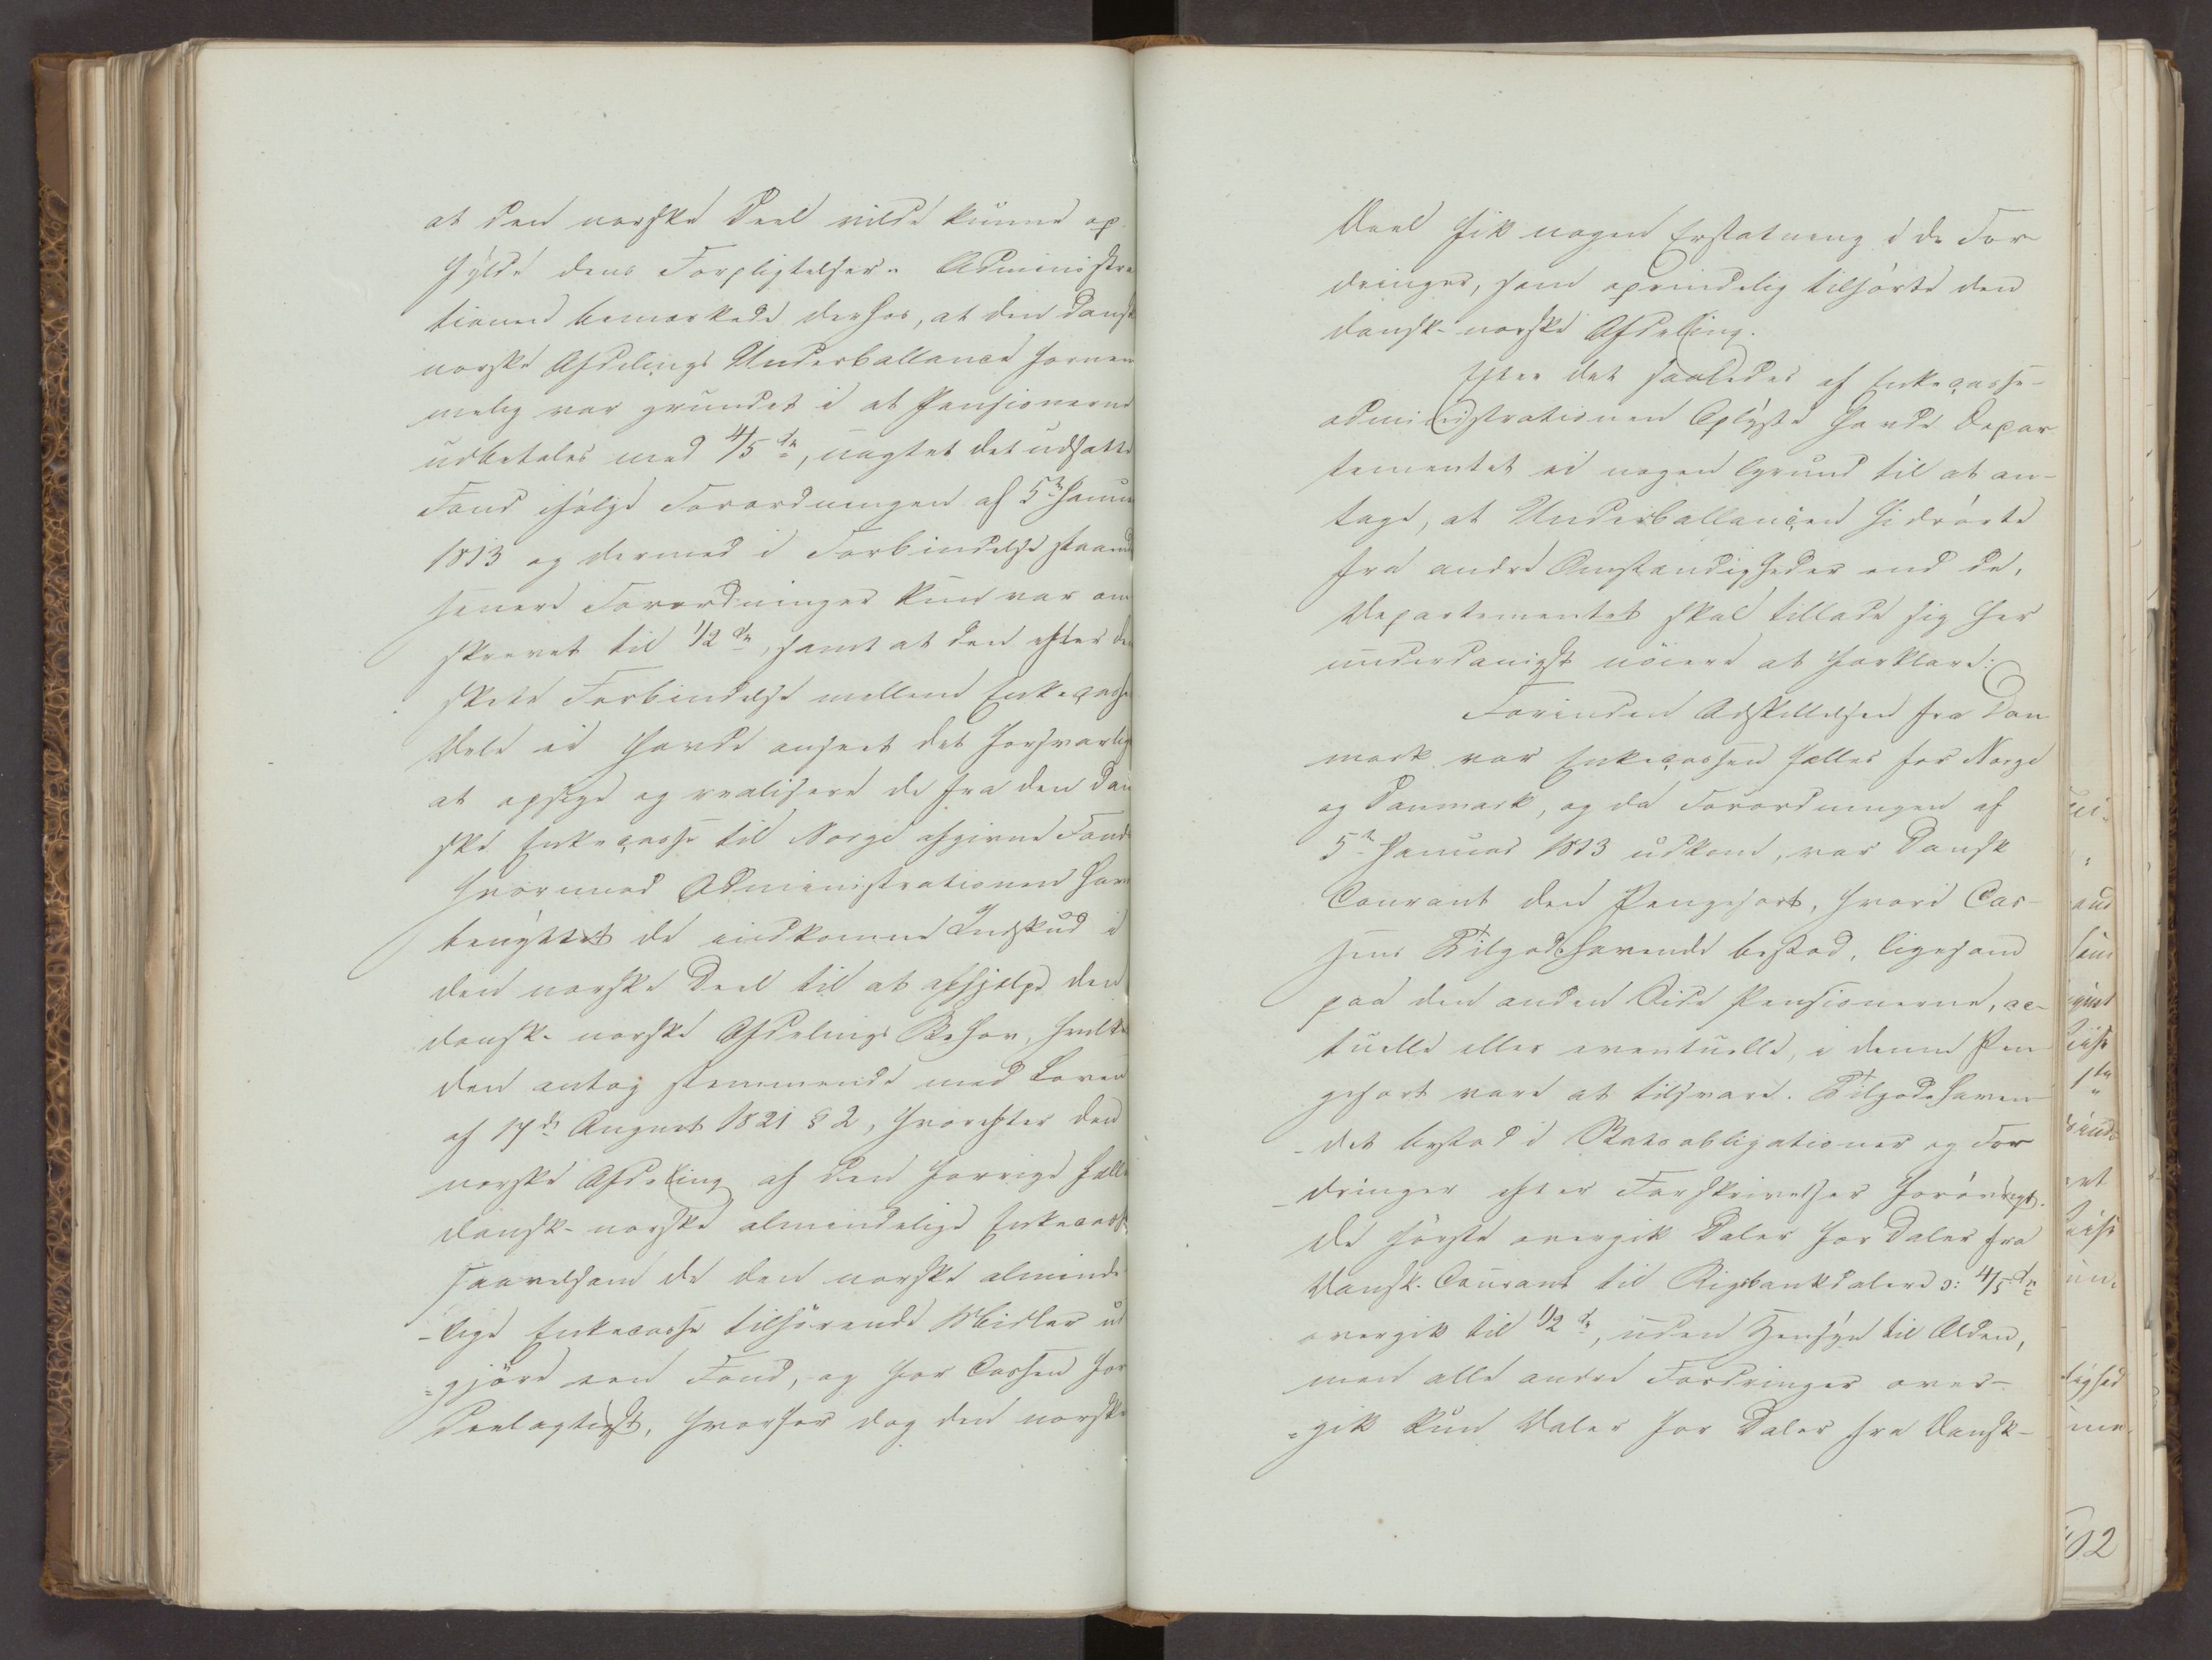 at den norske Deel vilde kunne op-
fylde dens Forpligtelser. Administra
tionen bemærkede derhos, at den dansk
norske Afdelings Underballance fornem
melig var grundet i at Pensionerne
udbetales med 4/5de, uagtet det udsatte
Fond ifølge Forordningen af 5te Janu
1813 og dermed i Forbindelse staaende
senere Forordninger kun var om
skrevet til 1/2de, samt at den efter den
skete Forbindelse mellem Enkecasse
Dele ei havde anseet det forsvarligt
at opsige og realisere de fra den dan
ske Enkecasse til Norge afgivne Fonds
hvorimod Administrationen har
benyttet de indkomne Indskud i
den norske Deel til at afhjælpe den
dansk-norske Afdelings Behov, hvilket
den antog stemmende med Loven
af 17de August 1821 § 2, hvorefter den
norske Afdeling af den forrige fælles
dansk-norske almindelige Enkecasse
saavelsom de den norske alminde
-lige Enkecasse tilhørende Midler ud
=gjøre een Fond, og for Cassen for
Deelagtigst, hvorfor dog den norske
Deel fik nogen Erstatning i de For
dringer, som oprindelig tilhørte den
dansk-norske Afdeling.
Efter det saaledes af Enkecasse-
administrationen Oplyste havde Depar
tementet ei nogen Grund til at an-
tage, at Underballancen hidrørte
fra andre Omstændigheder end de,
Departementet skal tillade sig her
underdanigst nöiere at forklare:
Forinden Adskillelsen fra Dan
mark var Enkecassen fælles for Norge
og Danmark, og da Forordningen af
5te Januar 1813 udkom, var Dansk
Courant den Pengesort, hvori Cas-
sens Tilgodehavende bestod, ligesom
paa den anden Side Pensionerne, ac-
tuelle eller eventuelle, i denne Pen
gesort vare at tilsvare. Tilgodehaven
-det bestod i Statsobligationer og For
-dringer efter Forskrivelser forøvrigt.
De første overgik Daler for Daler fra
Dansk Courant til Rigsbankdalere ɔ: 4/5de
overgik til 1/2de, uden Hensyn til Alden,
men alle andre Fordringer over-
=gik kun Daler for Daler fra Dansk-